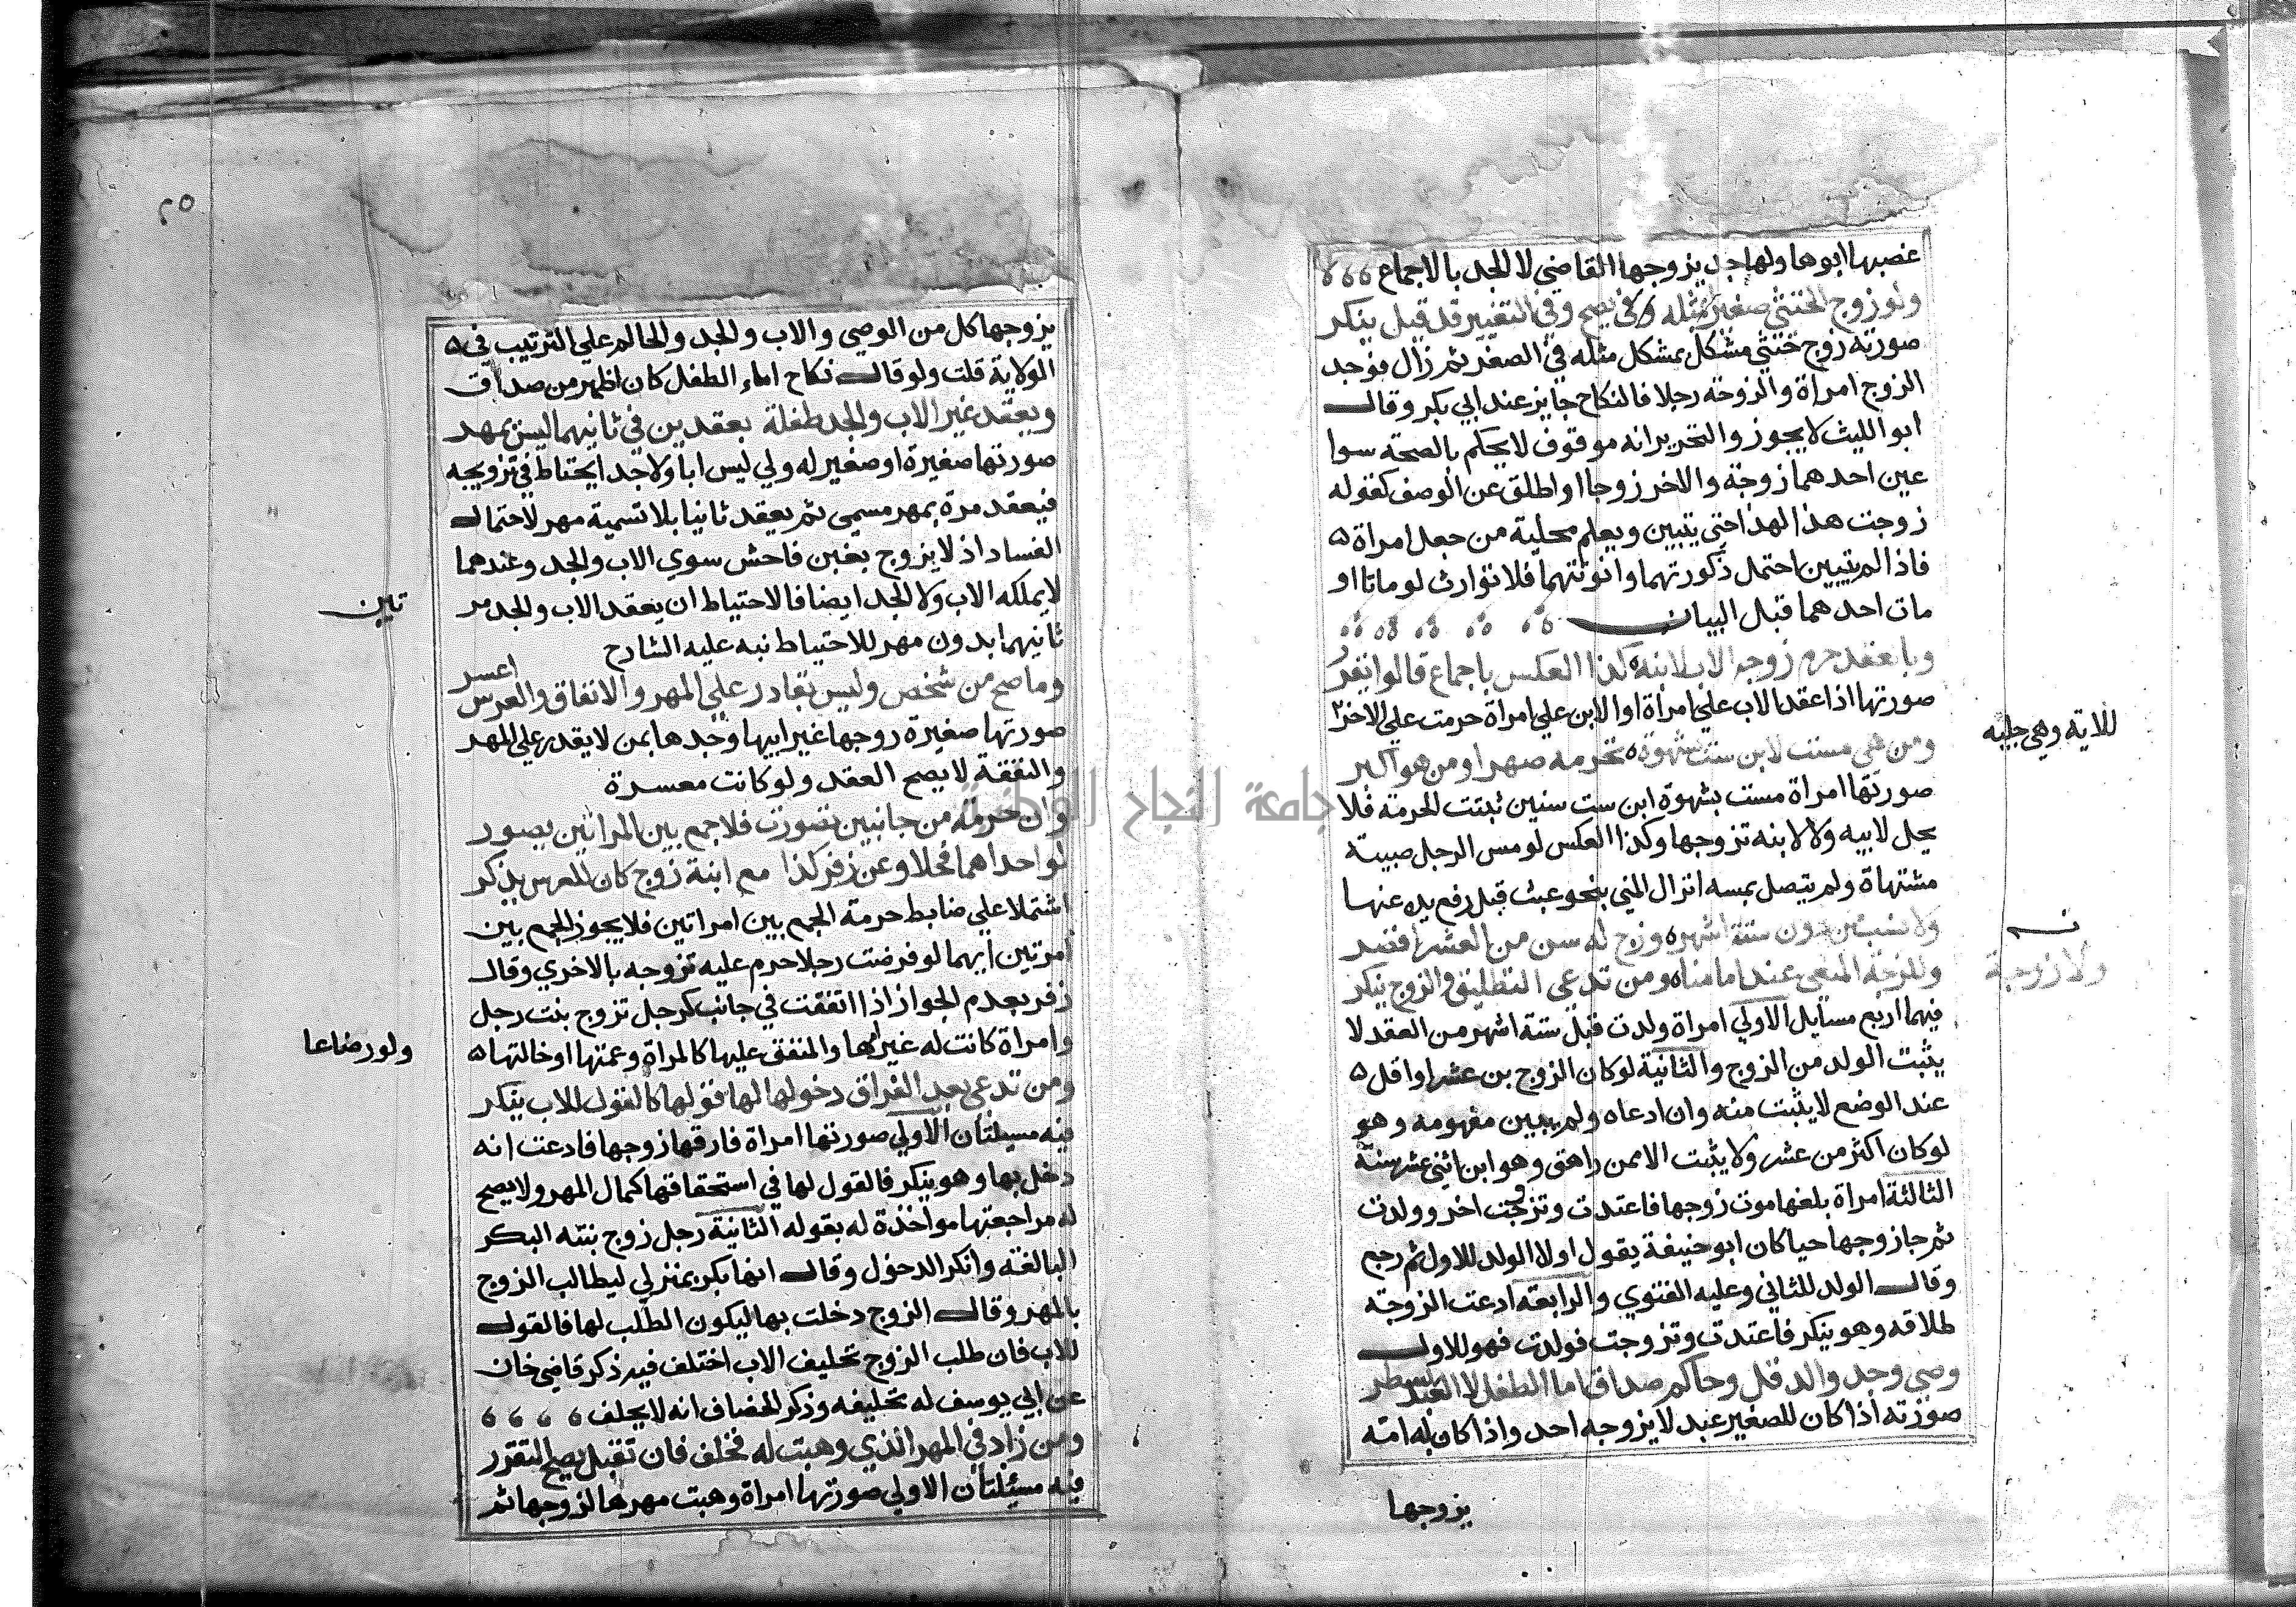 غصبها ابوها ولها جد يزوجها القاضي لا الجد بالاجماع
ولو زوج الخنثي صغير مثله في يصح وفي التغيير قد قيل ينكر
صورته زوج خنثي مشكل بمشكل مثله في الصغر ثم زال فوجد
الزوج امراة والزوجة رجلا فالنكاح جايز عند ابي بكر وقال
ابو الليث لا يجوز والتحرير انه موقوف لا يحكم بالصحة سوا
عين احدهما زوجة والاخر زوجا او اطلق عن الوصف كقوله
زوجت هذا لهذا حتي يتبين ويعلم محلية من جعل امراة
فاذا لم يتبين احتمل ذكورتهما وانوثتهما فلا توارث لو ماتا او
مات احدهما قبل البيان
وبا لعقد حرم زوجة الاب لابنه كذا العكس باجماع قالوا
صورتها اذا عقد الاب علي امراة او الابن علي امراة حرمت علي الاخر
للاية وهي جلية
ومن هي مست لابن ست بشهوة تحرمه صهرا ومن هو اكبر
صورتها امراة مست بشهوة ابن ست سنين ثبتت الحرمة فلا
يحل لابيه ولا لابنه تزوجها وكذا العكس لو مس الرجل صبية
مشتهاة ولم يتصل بمسه انزال المني بنحو عبث قبل رفع يده عنها
ولا نسب من دون ستة اشهر وزوج له سن من العشر
ولا زوجة
وللزوجة المنعي عندامامناه ومن تدعي التطليق والزوج ينكر
فيهما اربع مسايل الاولي امراة ولدت قبل ستة اشهر من العقد لا
يثبت الولد من الزوج والثانية لو كان الزوج بن عشر او اقل
عند الوضع لا يثبت منه وان ادعاه ولم يبين مفهومه وهو
لو كان اكثر من عشر ولا يثبت الا ممن راهق وهو ابن اثني عشر سنة
الثالثة امراة بلغها موت زوجها فاعتدت وتزوجت اخر وولدت
ثم جا زوجها حيا كان ابو حنيفة يقول اولا الولد للاول ثم رجع
وقال الولد للثاني وعليه الفتوي والرابعة ادعت الزوجة
طلاقه وهو ينكر فاعتدت وتزوجت فولدت فهو للاول
وصي وجد والد قل وحاكم صداق اما الطفل لا العبد
صورته اذا كان للصغير عبد لا يزوجه احد واذا كان له امة
يزوجها
٢٥
يزوجها كل من الوصي والاب والجد والحاكم علي الترتيب في
الولاية قلت ولو قال نكاح اماء الطفل كان اظهر من صداق
ويعقد غير الاب والجد طفلة بعقدين في ثانيهما ليس بمهر
صورتها صغيرة او صغير له ولي ليس ابا ولا جد ايحتاط في تزويجه
فيعقد مرة بمهر مسمي ثم يعقد ثانيا بلا تسمية مهر لاحتمال
الفساد اذ لا يزوج بغبن فاحش سوي الاب والجد وعندهما
لا يملكه الاب ولا الجد ايضا فالاحتياط ان يعقد الاب والجد مر
تين
ثانيهما بدون مهر للاحتياط نبه عليه الشارح
وما صح من شخص وليس بقادر علي المهر والانفاق والعرس
اعسر
صورتها صغيرة زوجها غير ابيها وجدها بمن لا يقدر علي المهر
والنفقة لا يصح العقد ولو كانت معسرة
وان حرمة من جانبين تصورت فلا جمع بين المراتين يصور
لو احداهما فحلا وعن زفر كذا مع ابنة زوج كان للعرس يذكر
اشتملا علي ضابط حرمة الجمع بين امراتين فلا يجوز الجمع بين
امرتين ايهما لو فرضت رجلا حرم عليه تزوجه بالاخري وقال
زفر بعدم الجواز اذا اتفقت في جانب كرجل تزوج بنت رجل
وامراة كانت له غير امها والمتفق عليها كالمراة وعمتها او خالتها
ولو رضاعا
ومن تدعي بعد الفراق دخولها لها فقولها كالقول للاب ينكر
فيه مسيلتان الاولي صورتها امراة فارقها زوجها فادعت انه
دخل بها وهو ينكر فالقول لها في استحقاقها كمال المهر ولا يصح
له مراجعتها مواخذة له بقوله الثانية رجل زوج بنته البكر
البالغة وانكر الدخول وقال انها بكر بمنزلي ليطالب الزوج
بالمهر وقال الزوج دخلت بها ليكون الطلب لها فالقول
للاب فان طلب الزوج تحليف الاب اختلف فيه ذكر قاضي خان
عن ابي يوسف له تحليفه وذكر الخصاف انه لا يحلف
ومن زاد في المهر الذي وهبت له فخلف فان تقبل يصح التقرر
فيه مسئلتان الاولي صورتها امراة وهبت مهرها لزوجها ثم
جامعة النجاح الوطنية